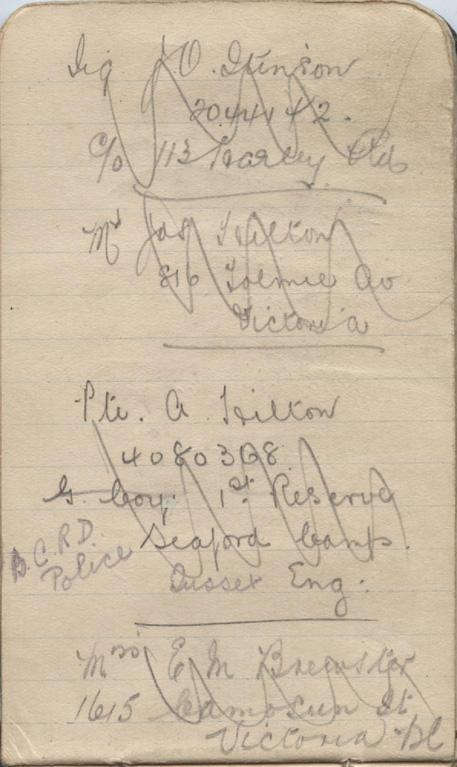 Sig J O. Stinson
2044142.
C/o 113 Harley Rd
Mr Jas Hilton
816 Tolmie Av
Victoria
Pte. A Hilton
4080308
G. Coy. 1st Reserve
B.C.R.D. Police
Seaford Camp.
Sussex Eng.
Mrs E M Brewster
1615 Camosun St
Victoria BC